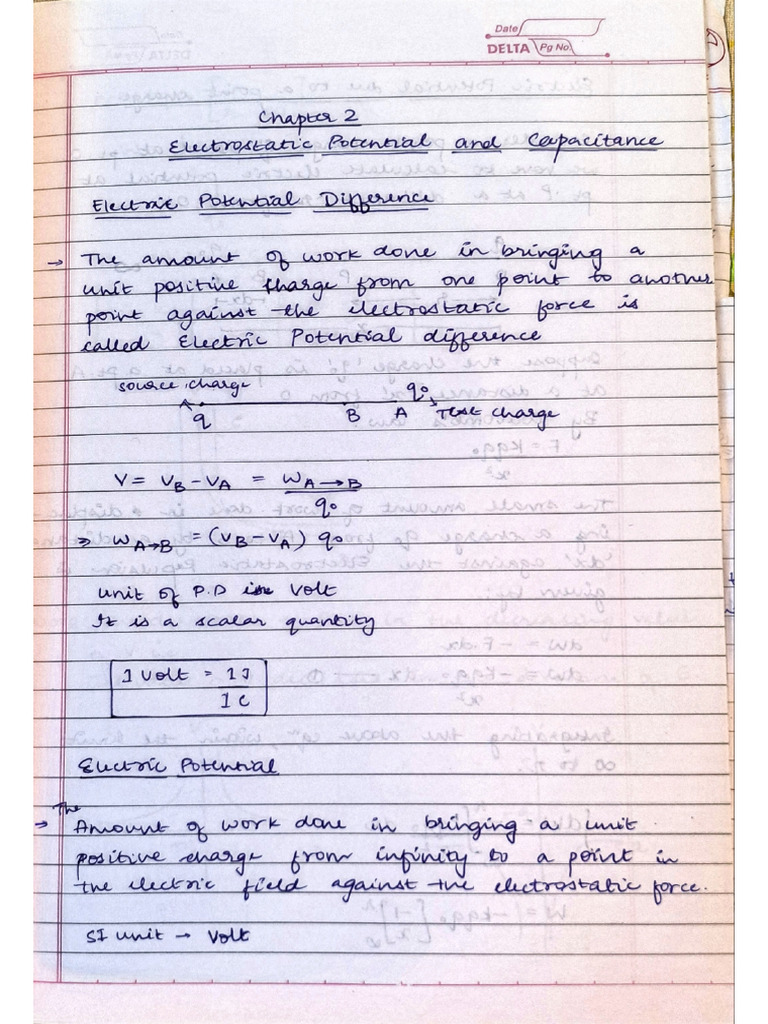 Date
DELTA Pg No.
Chapter 2
Electrostatic Potential and Capacitance
Electric Potential Difference
→ The amount of work done in bringing a
unit positive charge from one point to another
point against the electrostatic force is
called Electric Potential difference
source charge q₀
q B A Test charge
V = V_B - V_A = W_A→B / q₀
⇒ W_A→B = (V_B - V_A) q₀
unit of P.D is Volt
It is a scalar quantity
1 Volt = 1J / 1C
Electric Potential
The
→ Amount of work done in bringing a unit
positive charge from infinity to a point in
the electric field against the electrostatic force.
SI unit → Volt